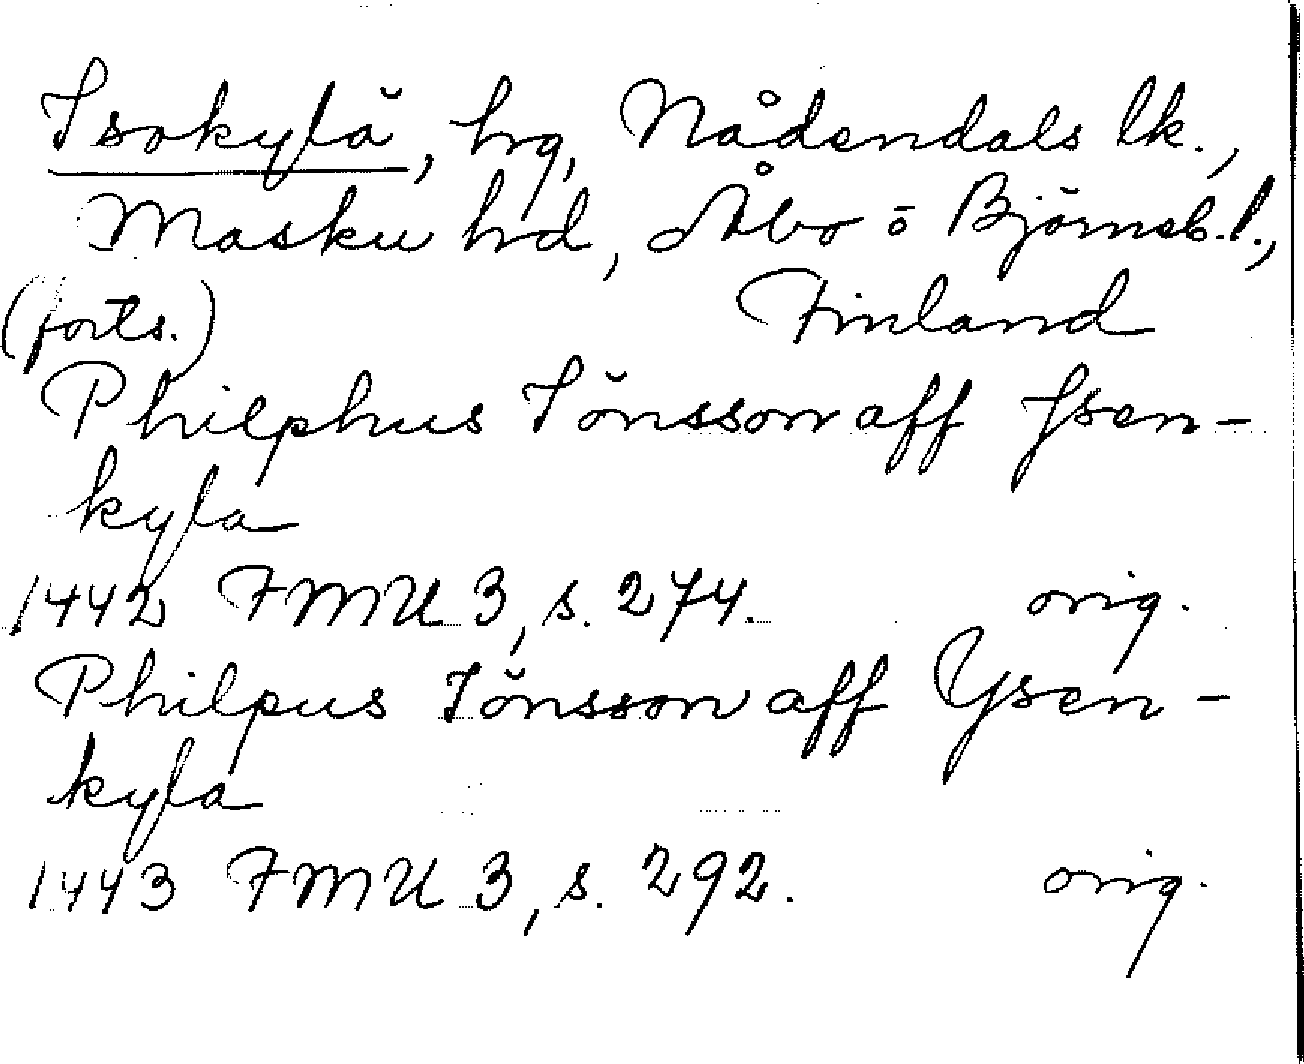 Isokylä, hrg, Nådendals lk.,
Masku hd, Åbo ō Björneb. l.,
(forts.) Finland
Philphus Jönsson aff Jsen-
kyla
1442 FMU 3, s. 274. orig.
Philpus Jönsson aff Ysen-
kyla
1443 FMU 3, s. 292. orig.